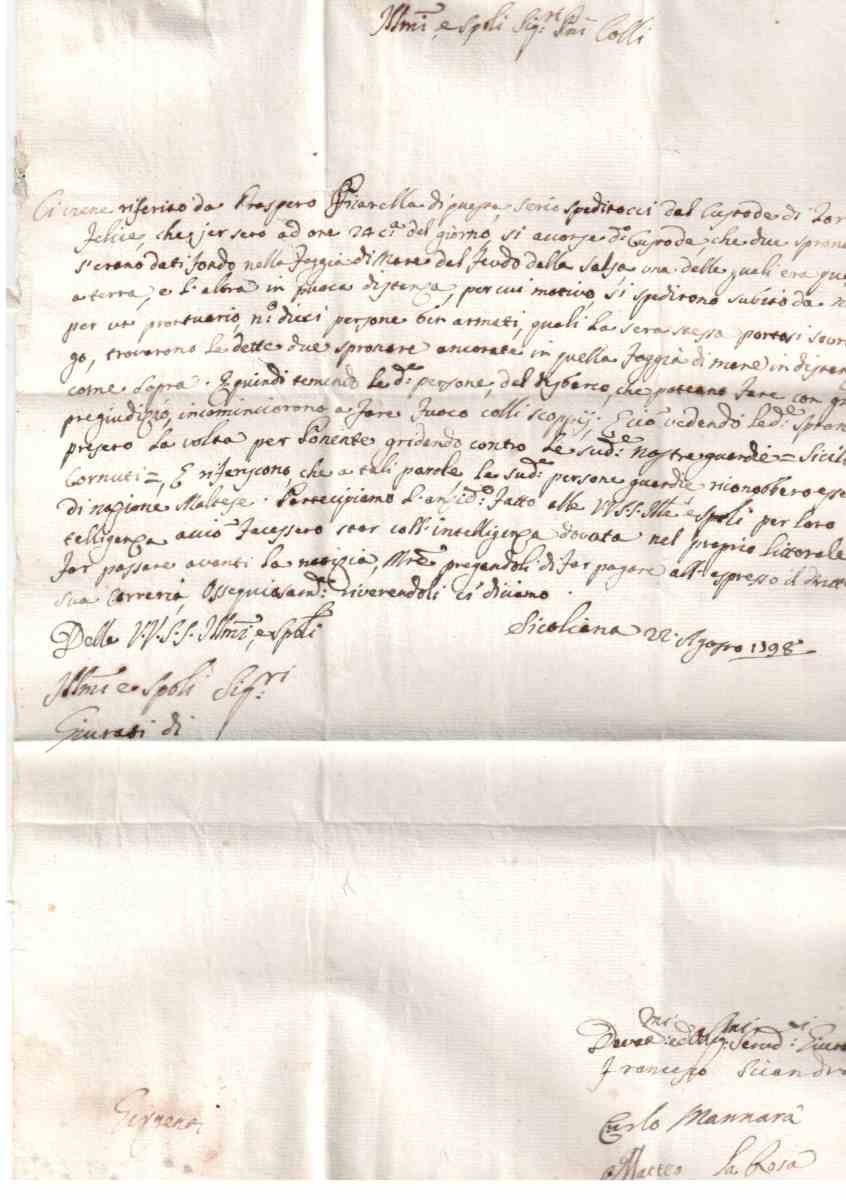 Illmi, e Spbli Sig:ri Pni Colli
Ci viene riferito da Prospero Piccarella di questa, serio speditocci dal Custode di Tor
Felice, che jer sero ad ore 24 ca del giorno, si accorse do: Custode, che due sprona
s'erano dati fondo nella spaggia di mare del feudo della Salsa una delle quali era qua
a terra, e l'altra in puoca distanza, per cui motivo, si spedirono subito da n
per ut prontuario, no: dieci persone ben armati, quali la sera stessa portasi sovra
go, trovarono le dette due spronare ancorate in quella spaggia di mare in distan
come sopra. E quindi temendo le de: persone, del disbarco, che poteano fare con gr
pregiudizio, incominciorono a fare fuoco colli scoppij; E ciò vedendo le de: Spron
presero la volta per Ponente gridando contro le sude: nostre guardie = Sicili
Cornuti =, E riferiscono, che a tali parole le sude: persone guardie riconobbero esse
di nazione Maltese. Partecipiamo l'ansido: fatto alle VV.S.S. Illme e Spbli per loro
telligenza acciò facessero star coll'intelligenza dovuta nel proprio littorale
far passare avanti la notizia, Mre pregandoli di far pagare all'espresso il diritto
sua correria, Ossequiosamte: riverendoli ci diciamo.
Delle V.V.S.S. Illmi, e Spbli
Siculiana 22. Agosto 1798
Illmi e Spbli Sig:ri
Giurati di
Girgenti
Devotmi: ed obligmi: Servdri: Giura
Francesco Sciandra
Carlo Mannarà
Matteo La Rosa